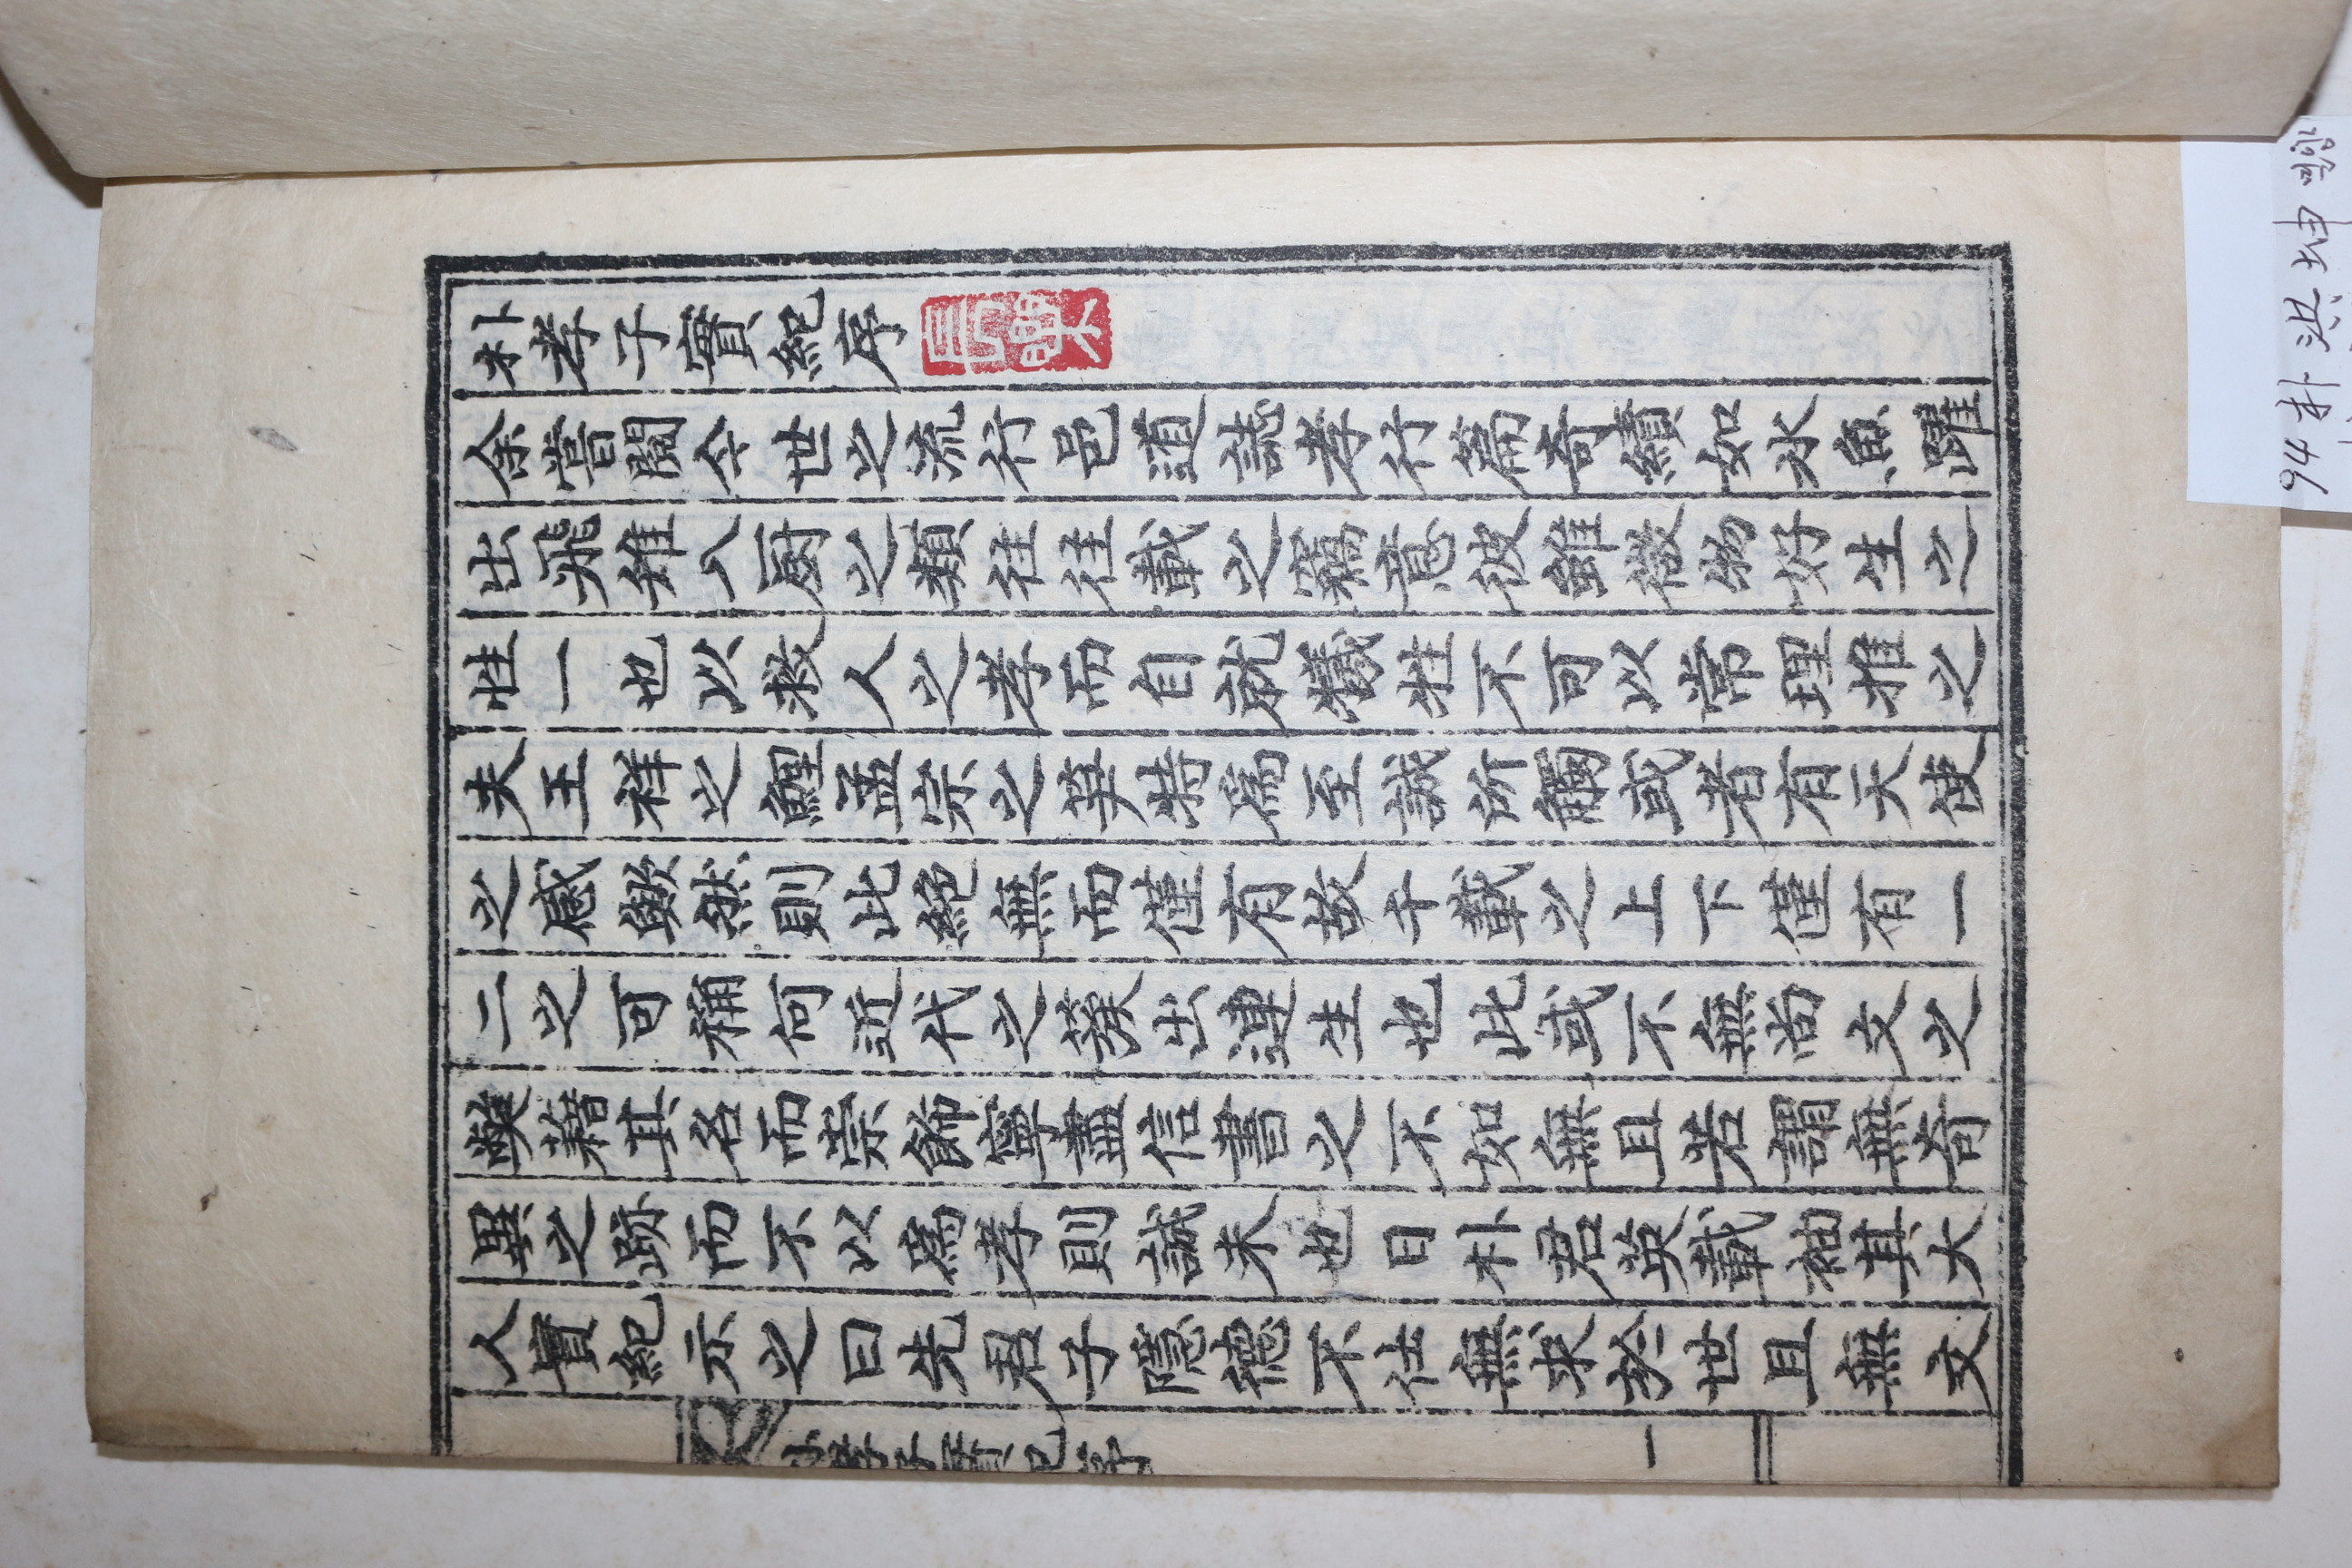 朴孝子實紀序
余嘗閱今世之流行邑道誌孝行篇奇績如氷魚躍
出飛雉入厨之類往往載之竊意彼雖微物好生之
性一也以救人之孝而自就犧牲不可以常理推之
夫王祥之鯉孟宗之笋特爲至誠所觸或者有天使
之感歟然則此絶無而僅有故千載之上下僅有一
二之可稱何近代之蔟出連生也此或不無尚文之
弊藉其名而崇飾寧盡信書之不如無且若謂無奇
異之跡而不以爲孝則誠未也日朴君英載袖其大
人實紀示之曰先君子隱德不仕無求於世且無文
朴孝子實紀序
一
94 朴洪坤 밀양